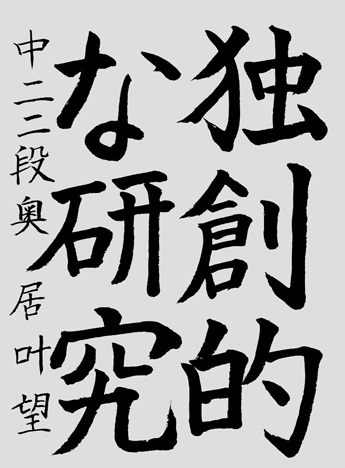 独創的
な研究
中二二段奥居叶望